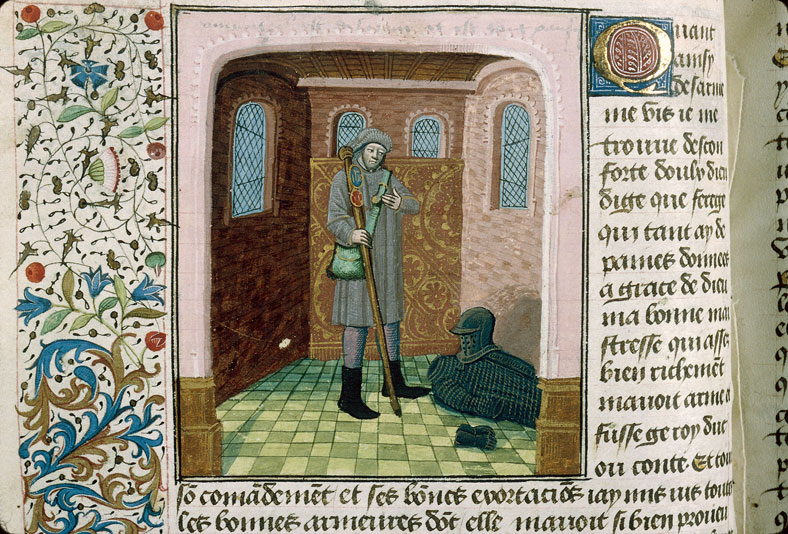 Quant
ainsy
desarme
me vis ie me
trouue descon
forte doulx dieu
dige que ferege
qui tant ay de
paines donnees
a grace de dieu
ma bonne mai
stresse qui asses
bien richemēt
mauoit arme a
fusse ge roy duc
ou conte Et tou
sō comādement et ses bōnes exortaciōs iay mis ius toute
ses bonnes armeures dōt elle mauoit si bien proueu